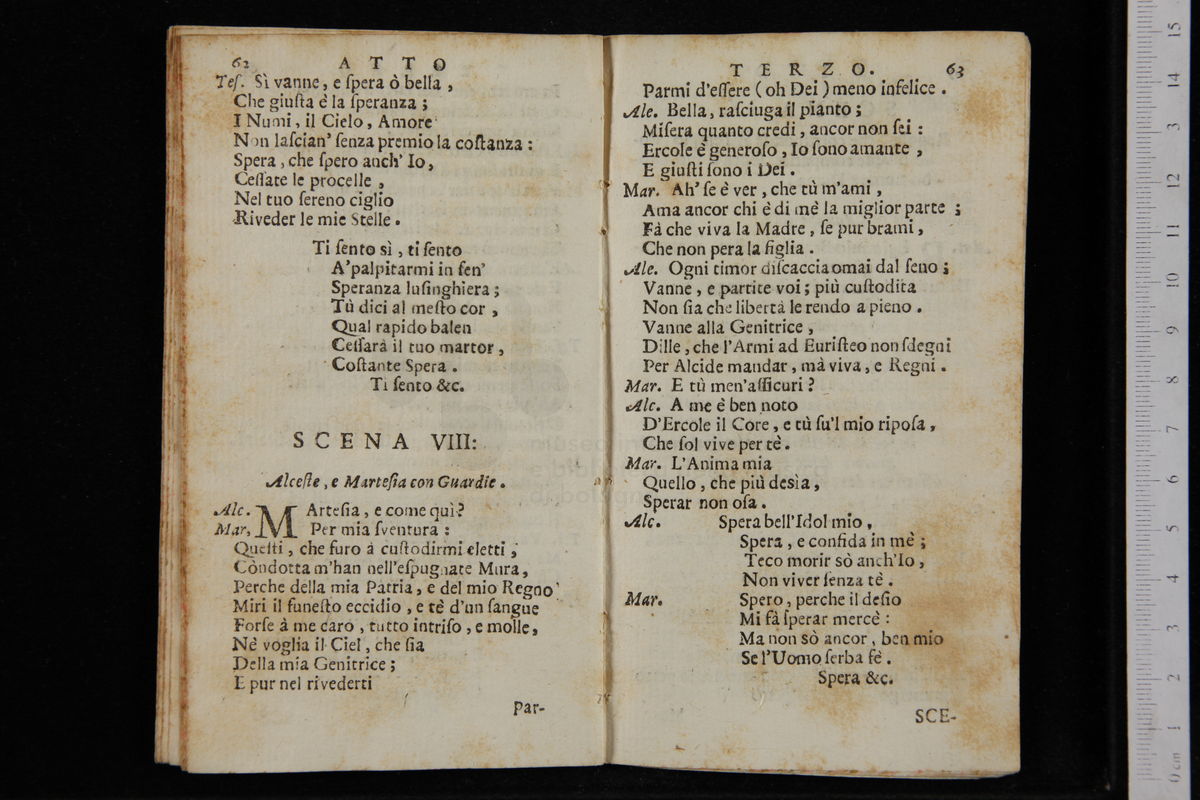 62 ATTO
Teſ. Sì vanne, e ſpera ò bella,
Che giuſta è la ſperanza;
I Numi, il Cielo, Amore
Non laſcian' ſenza premio la coſtanza:
Spera, che ſpero anch' Io,
Ceſſate le procelle,
Nel tuo ſereno ciglio
Riveder le mie Stelle.
Ti ſento sì, ti ſento
A' palpitarmi in ſen'
Speranza luſinghiera;
Tù dici al meſto cor,
Qual rapido balen
Ceſſarà il tuo martor,
Coſtante Spera.
Ti ſento &c.
SCENA VIII:
Alceſte, e Marteſia con Guardie.
Alc. MArteſia, e come quì?
Mar, Per mia ſventura:
Queſti, che furo à cuſtodirmi eletti,
Còndotta m'han nell'eſpugnate Mura,
Perche della mia Patria, e del mio Regno
Miri il funeſto eccidio, e tè d'un ſangue
Forſe à me caro, tutto intriſo, e molle,
Nè voglia il Ciel, che ſia
Della mia Genitrice;
E pur nel rivederti
Par-
TERZO. 63
Parmi d'eſſere (oh Dei) meno infelice.
Alc. Bella, raſciuga il pianto;
Miſera quanto credi, ancor non ſei:
Ercole è generoſo, Io ſono amante,
E giuſti ſono i Dei.
Mar. Ah' ſe è ver, che tù m'ami,
Ama ancor chi è di mè la miglior parte;
Fà che viva la Madre, ſe pur brami,
Che non pera la figlia.
Alc. Ogni timor diſcaccia omai dal ſeno;
Vanne, e partite voi; più cuſtodita
Non ſia che libertà le rendo a pieno.
Vanne alla Genitrice,
Dille, che l'Armi ad Euriſteo non ſdegni
Per Alcide mandar, mà viva, e Regni.
Mar. E tù men'aſſicuri?
Alc. A me è ben noto
D'Ercole il Core, e tù ſu'l mio ripoſa,
Che ſol vive per tè.
Mar. L'Anima mia
Quello, che più desìa,
Sperar non oſa.
Alc. Spera bell'Idol mio,
Spera, e confida in mè;
Teco morir sò anch'Io,
Non viver ſenza tè.
Mar. Spero, perche il deſio
Mi fà ſperar mercè:
Ma non sò ancor, ben mio
Se l'Uomo ſerba fè.
Spera &c.
SCE-